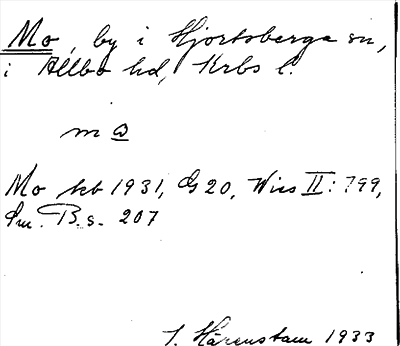 Mo, by i Hjortsberga sn,
i Allbo hd, Krbs l.
m ω
Mo kb 1931, G 20, Wies II: 799,
Sm. B.s. 207
Härenstam 1933